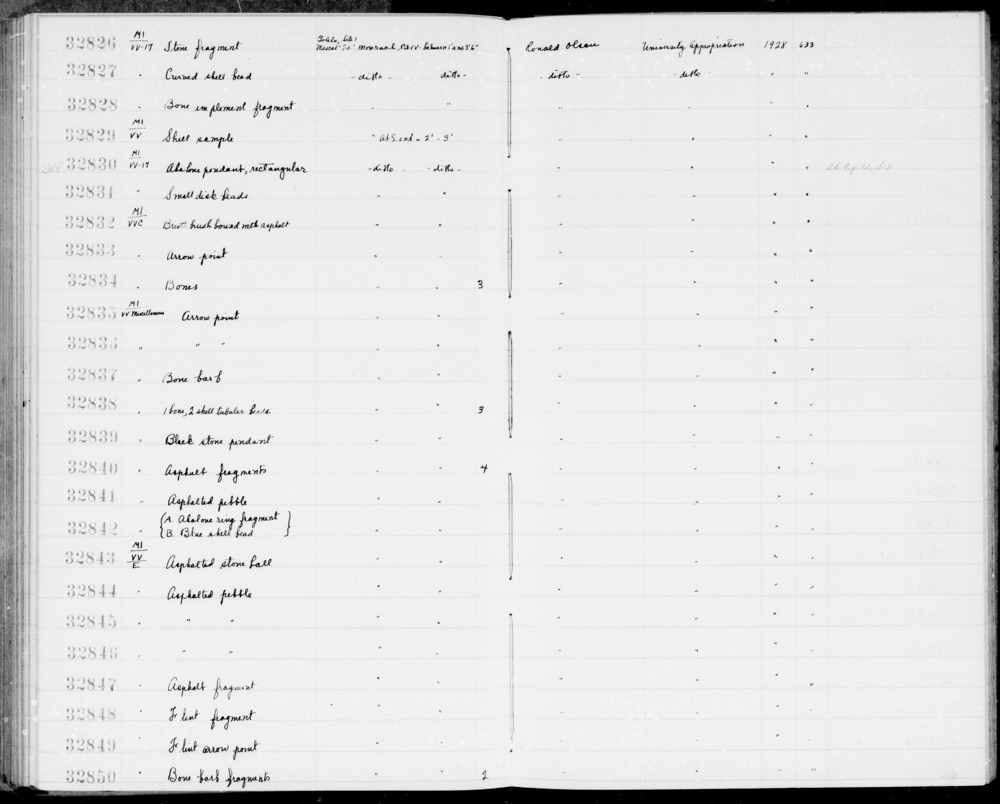 32826 M1 VV-17 Stone fragment Mescal Is. Mound Pit V. between 1' and 3'6" Ronald Olson University Appropriation 1928 633
32827 " Curved shell bead - ditto - ditto - - ditto - - ditto " "
32828 " Bone implement fragment " " " " " "
32829 M1 VV Shell sample " At S. end - 2' - 3' " " " "
32830 M1 VV-17 Abalone pendant, rectangular - ditto - ditto - " " " "
32831 " Small disk beads " " " " " "
32832 M1 VVC brush bound with asphalt " " " " " "
32833 " Arrow point " " " " " "
32834 " Bones " " 3 " " " "
32835 M1 VV Miscellaneous Arrow point " " " " " "
32836 " " " " " " " " "
32837 " Bone barb " " " " " "
32838 " 1 bone, 2 shell tubular beads " " 3 " " " "
32839 " Black stone pendant " " " " " "
32840 " Asphalt fragments " " 4 " " " "
32841 " Asphalted pebble " " " " " "
32842 " {A. Abalone ring fragment
B. Blue shell bead} " " " " " "
32843 M1 VV E Asphalted stone ball " " " " " "
32844 " Asphalted pebble " " " " " "
32845 " " " " " " " "
32846 " " " " " " " "
32847 " Asphalt fragment " " " " " "
32848 " Flint fragment " " " " " "
32849 " Flint arrow point " " " " " "
32850 " Bone barb fragments " " 2 " " " "